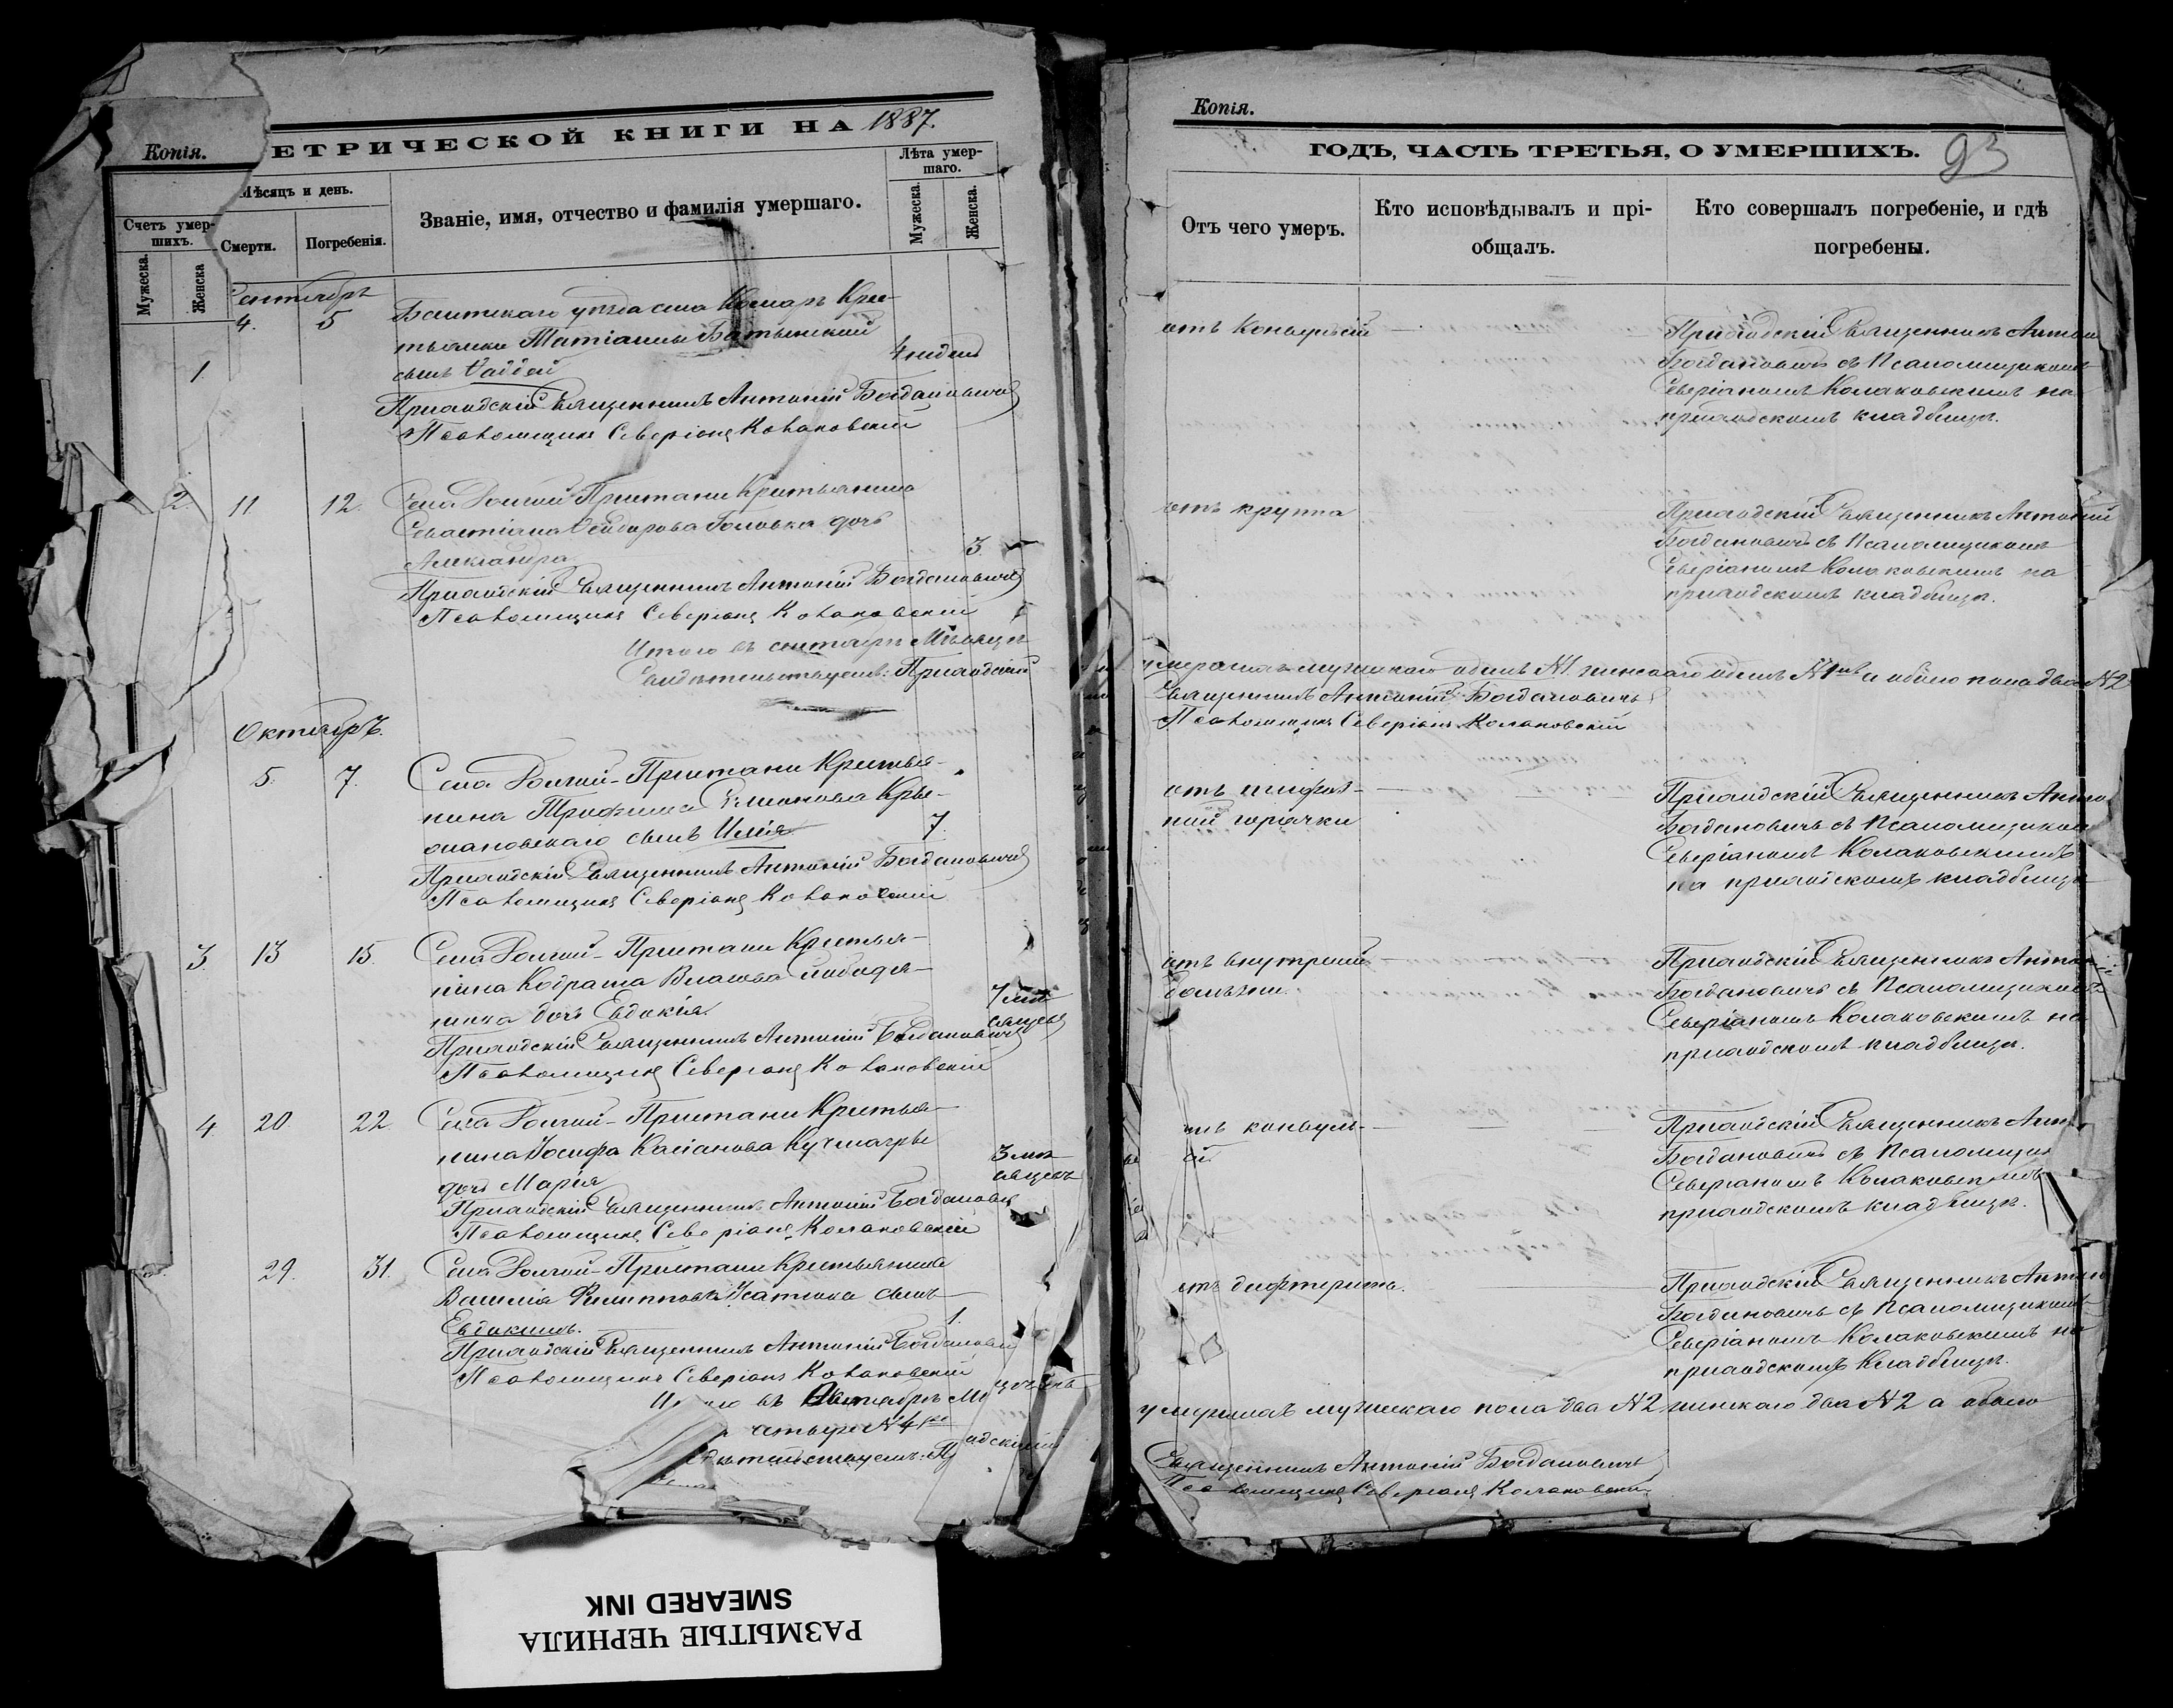 Копія.
ЕТРИЧЕСКОЙ КНИГИ НА 1887.
Счетъ умер-
шихъ.
Мужеска.
Женска
Мѣсяцъ и день.
Смерти.
Погребенія.
Званіе, имя, отчество и фамилія умершаго.
Лѣта умер-
шаго.
Мужеска.
Женска.
Сентябрь
4. 5 Балтскаго уѣзда села Комаръ Крес-
1. тьянки Татіаны
сынъ Фаддей 4 недел
Приходскій Священникъ Антоній Богдановичъ
Псаломщикъ Северіанъ Колаковскій
2. 11. 12. Села Долгой Пристани Крестьянина
Севастіана Ѳеодорова Головка дочь
Александра 3
Приходскій Священникъ Антоній Богдановичъ
Псаломщикъ Северіанъ Колаковскій
Итого въ сентябрѣ Мѣсяцѣ
Свидѣтельствуемъ: Приходскій
Октябрь.
5. 7. Села Долгой-Пристани Крестья-
нина Трофима Симонова
сынъ Илія 7.
Приходскій Священникъ Антоній Богдановичъ
Псаломщикъ Северіанъ Колаковскій
3. 13 15. Села Долгой-Пристани Крестья-
нина Кодрата Власова
дочь Евдокія 7 мѣ
сяцевъ
Приходскій Священникъ Антоній Богдановичъ
Псаломщикъ Северіанъ Колаковскій
4. 20. 22. Села Долгой-Пристани Крестья-
нина Іосифа Касіанова
дочь Марія 3 мѣ
сяцевъ
Приходскій Священникъ Антоній Богданович
Псаломщикъ Северіанъ Колаковскій
29. 31. Села Долгой-Пристани Крестьянина
Василія Филиппова Усатюка сынъ
Евдокимъ. 1.
Приходскій Священникъ Антоній Богданови
Псаломщикъ Северіанъ Колаковскій
въ Октябрѣ Мѣ
четыре №4
Копія.
ГОДЪ, ЧАСТЬ ТРЕТЬЯ, О УМЕРШИХЪ. 93
Отъ чего умеръ.
Кто исповѣдывалъ и прі-
общалъ.
Кто совершалъ погребеніе, и гдѣ
погребены.
отъ Конвульсій
Приходскій Священникъ Антон
Богдановичъ съ Псаломщикомъ
Северіаномъ Колаковскимъ на
приходскомъ кладбищѣ.
отъ круппа
Приходскій Священникъ Антоній
Богдановичъ съ Псаломщикомъ
Северіаномъ Колаковскимъ на
приходскомъ кладбищѣ.
умерло мужескаго одинъ №1 женскаго одинъ №1 а обоего пола два №2
Священникъ Антоній Богдановичъ
Псаломщикъ Северіанъ Колаковскій
отъ тифоз-
ной горячки
Приходскій Священникъ Анто
Богдановичъ съ Псаломщиком
Северіаномъ Колаковскимъ
на приходскомъ кладбищѣ
отъ внутренней
болѣзни.
Приходскій Священникъ Антон
Богдановичъ съ Псаломщикомъ
Северіаномъ Колаковскимъ на
приходскомъ кладбищѣ.
отъ конвуль-
сій
Приходскій Священникъ Ант
Богдановичъ съ Псаломщик
Северіаномъ Колаковскимъ
приходскомъ кладбищѣ.
отъ дифтерита.
Приходскій Священникъ Антоні
Богдановичъ съ Псаломщикомъ
Северіаномъ Колаковскимъ на
приходскомъ Кладбищѣ.
мужескаго пола два №2 женскаго два №2 а обоего
Священникъ Антоній Богдановичъ
Псаломщикъ Северіанъ Колаковскій
РАЗМЫТЫЕ ЧЕРНИЛА
SMEARED INK